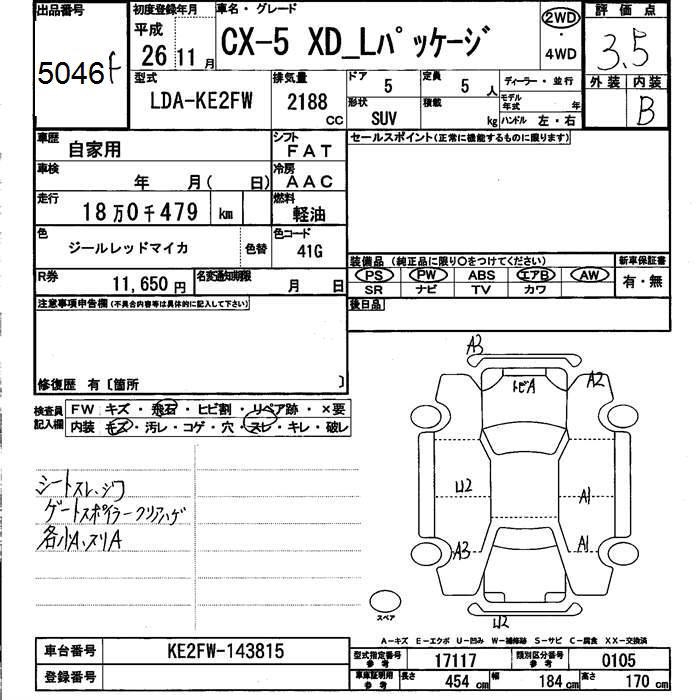 出品番号 初度登録年月 車名・グレード 評価点
5046 f 平成 26 11月 CX-5 XD_Lパッケージ 2WD・4WD 3.5
型式 排気量 ドア 定員 ディーラー・並行 外装 内装
LDA-KE2FW 2188 CC 5 5人 モデル年式 年 B
形状 SUV 積載 kg ハンドル 左・右
車歴 自家用 シフト FAT セールスポイント(正常に機能するものに限ります)
車検 年 月( 日) 冷房 AAC
走行 18万0千479 km 燃料 軽油
色 ジールレッドマイカ 色替 色コード 41G
装備品 (純正品に限り〇をつけてください) 新車保証書
R券 11,650円 名変通知期限 月 日 PS PW ABS エアB AW 有・無
SR ナビ TV カワ
注意事項申告欄(不具合内容等は具体的に記入して下さい) 後日品
修復歴 有〔箇所 〕
検査員記入欄 FW キズ・飛石・ヒビ割・リペア跡・×要
内装 キズ・汚レ・コゲ・穴・スレ・キレ・破レ
シートスレ、シワ
ゲートスポイラークリアハゲ
各小A、スリA
A3
トビA A2
U2 A1
A3 A1
U2
スペア
A-キズ E-エクボ U-凹み W-補修跡 S-サビ C-腐食 XX-交換済
車台番号 KE2FW-143815 型式指定番号 参考 17117 類別区分番号 参考 0105
登録番号 車庫証明用 参考 長さ 454cm 幅 184cm 高さ 170cm